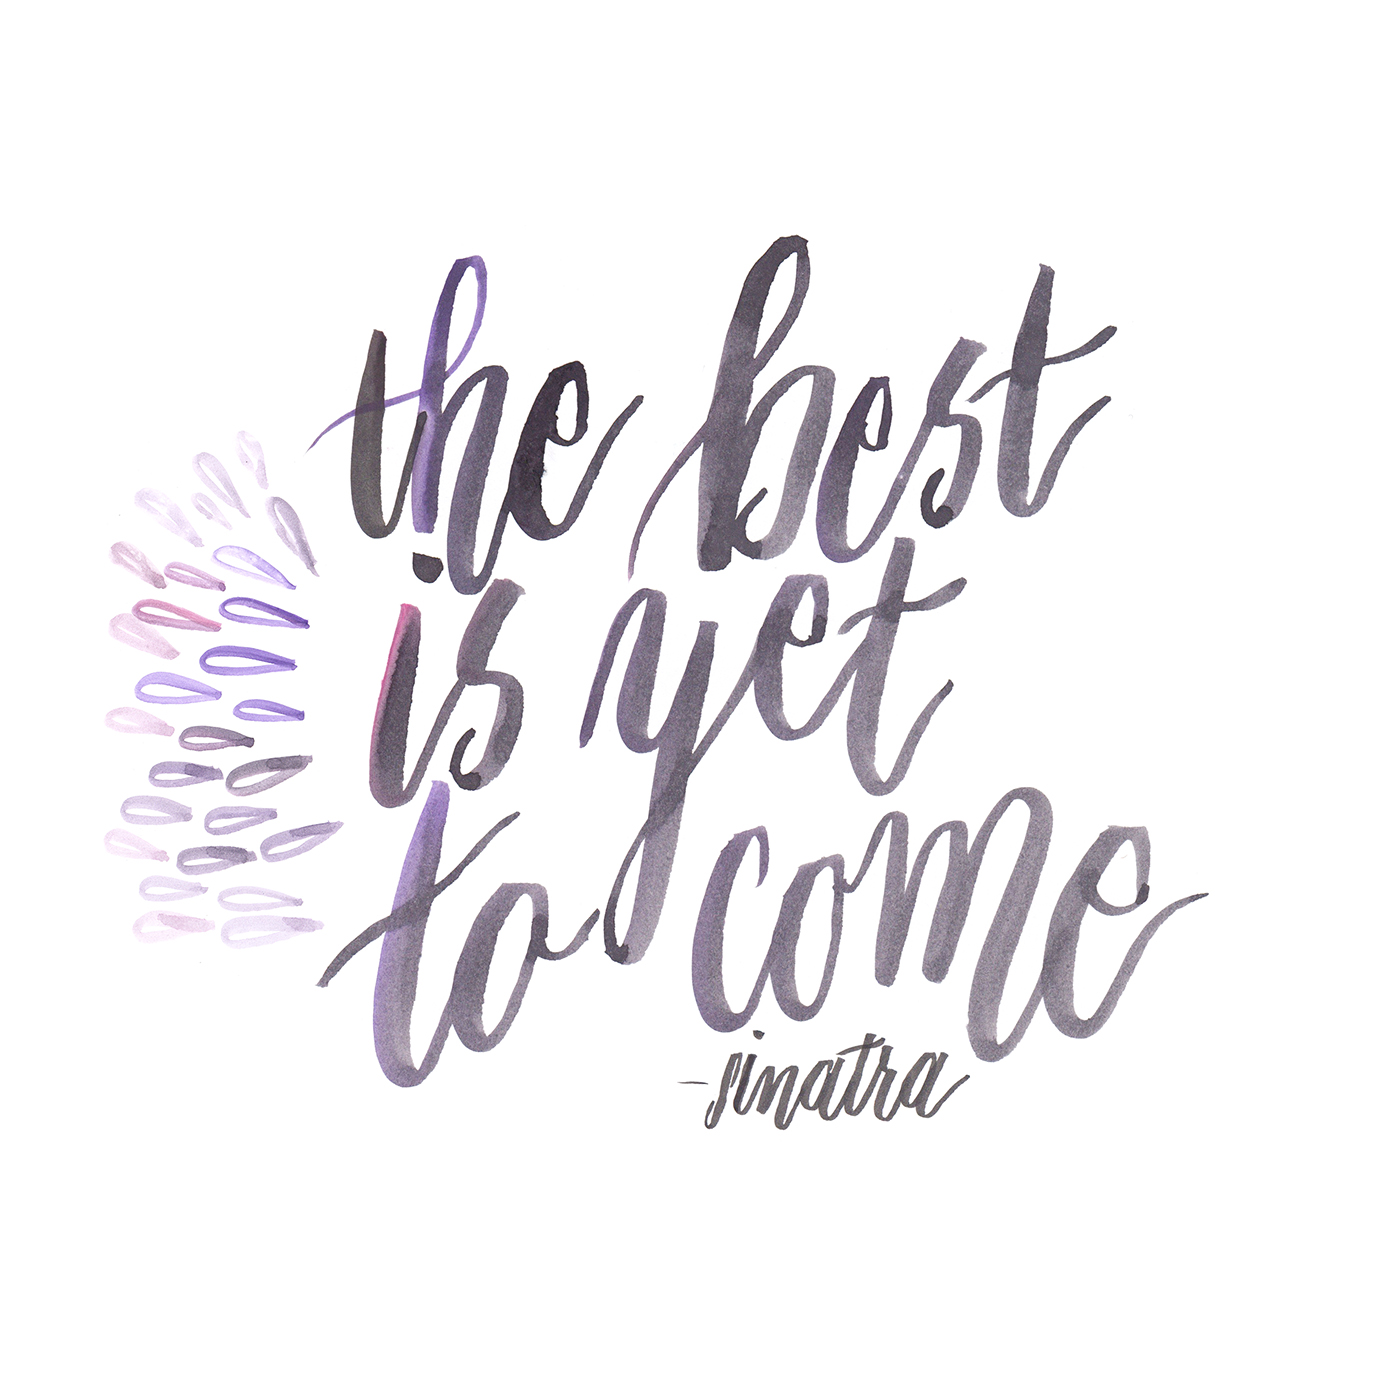 the best
is yet
to come
-sinatra